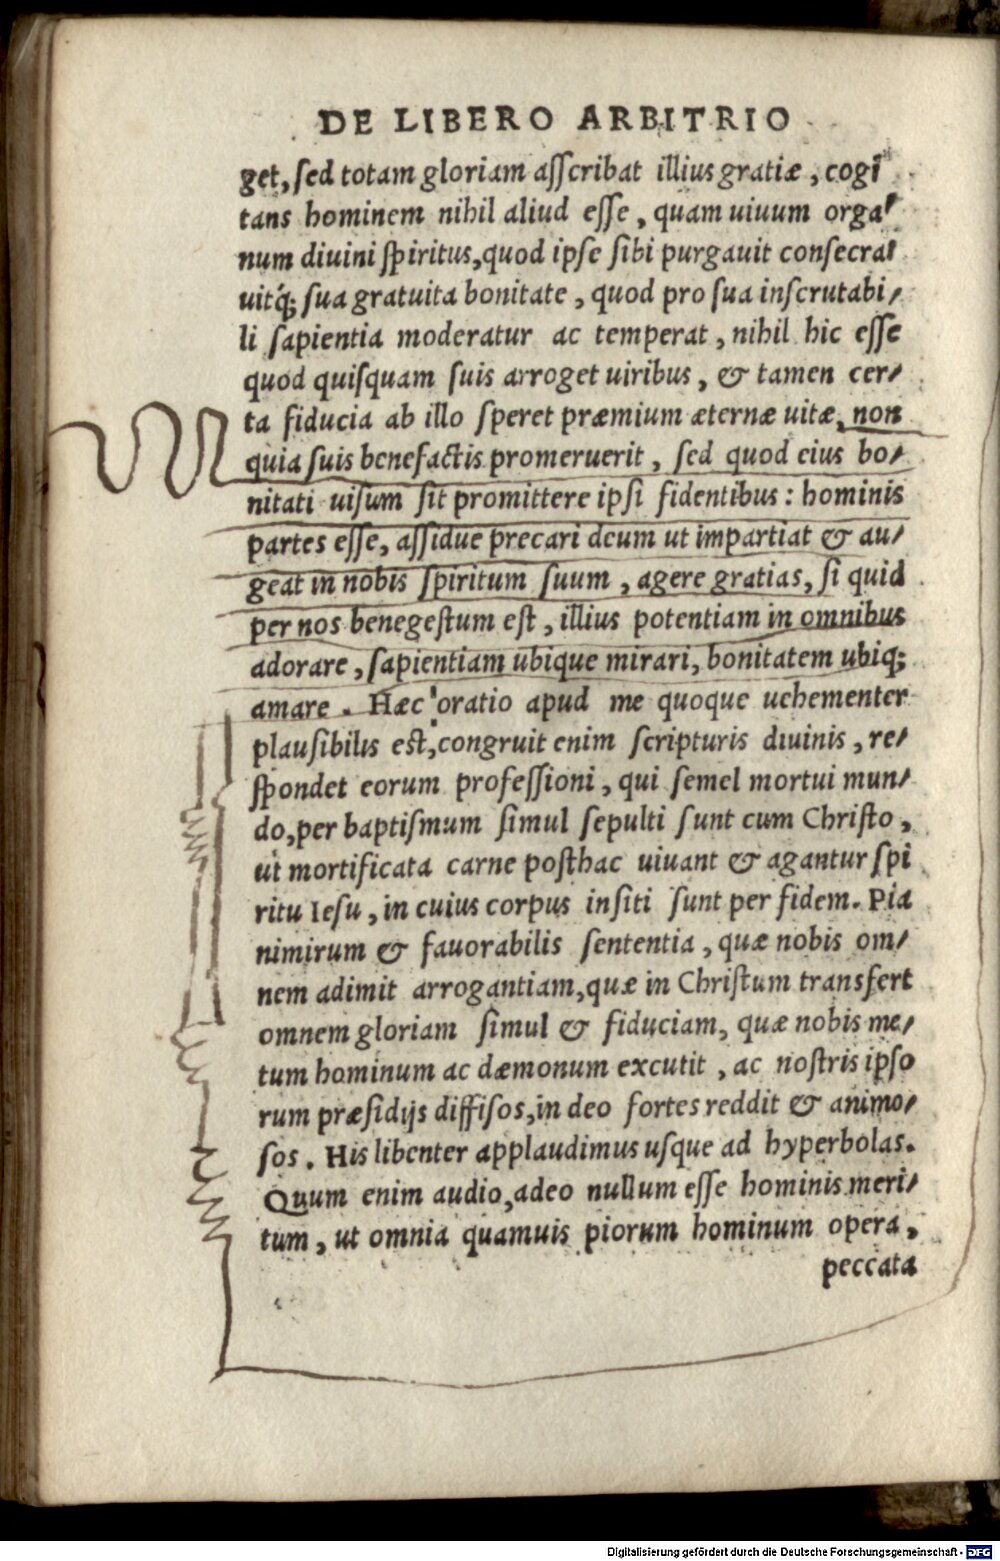 DE LIBERO ARBITRIO
get, sed totam gloriam asscribat illius gratiæ, cogi
tans hominem nihil aliud esse, quam uiuum orga/
num diuini spiritus, quod ipse sibi purgauit consecra/
uitq́; sua gratuita bonitate, quod pro sua inscrutabi/
li sapientia moderatur ac temperat, nihil hic esse
quod quisquam suis arroget uiribus, & tamen cer/
ta fiducia ab illo speret præmium æternæ uitæ, non
quia suis benefactis promeruerit, sed quod eius bo/
nitati uisum sit promittere ipsi fidentibus: hominis
partes esse, assidue precari deum ut impartiat & au/
geat in nobis spiritum suum, agere gratias, si quid
per nos benegestum est, illius potentiam in omnibus
adorare, sapientiam ubique mirari, bonitatem ubiq;
amare. Hæc oratio apud me quoque uehementer
plausibilis est, congruit enim scripturis diuinis, re/
spondet eorum professioni, qui semel mortui mun/
do, per baptismum simul sepulti sunt cum Christo,
ut mortificata carne posthac uiuant & agantur spi
ritu Iesu, in cuius corpus insiti sunt per fidem. Pia
nimirum & fauorabilis sententia, quæ nobis om/
nem adimit arrogantiam, quæ in Christum transfert
omnem gloriam simul & fiduciam, quæ nobis me/
tum hominum ac dæmonum excutit, ac nostris ipso
rum præsidijs diffisos, in deo fortes reddit & animo/
sos. His libenter applaudimus usque ad hyperbolas.
Quum enim audio, adeo nullum esse hominis meri/
tum, ut omnia quamuis piorum hominum opera,
peccata
Digitalisierung gefördert durch die Deutsche Forschungsgemeinschaft - DFG